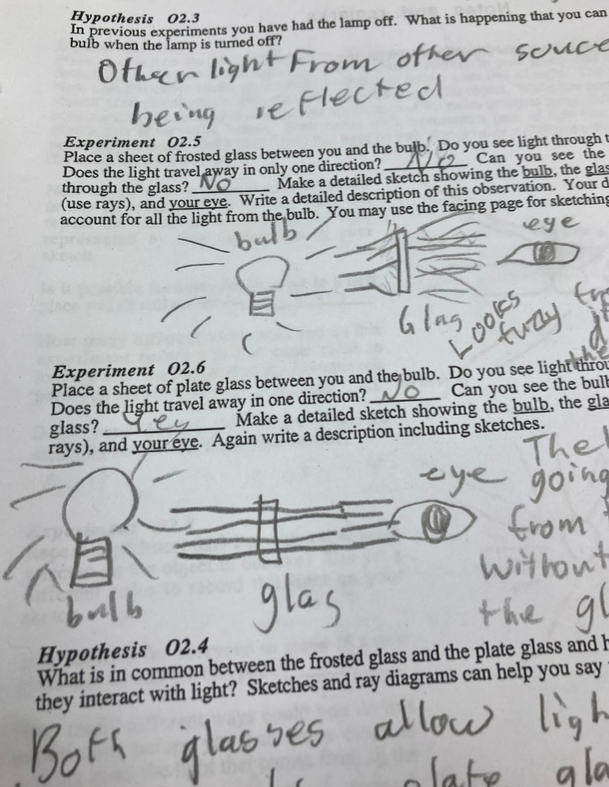 Hypothesis O2.3
In previous experiments you have had the lamp off. What is happening that you can
bulb when the lamp is turned off?
Other light From other souce
being reflected
Experiment O2.5
Place a sheet of frosted glass between you and the bulb. Do you see light through t
Does the light travel away in only one direction? No Can you see the
through the glass? No Make a detailed sketch showing the bulb, the glas
(use rays), and your eye. Write a detailed description of this observation. Your d
account for all the light from the bulb. You may use the facing page for sketching
bulb
eye
Glas
Looks
fuzzy
Experiment O2.6
Place a sheet of plate glass between you and the bulb. Do you see light throu
Does the light travel away in one direction? No Can you see the bull
glass? Yey Make a detailed sketch showing the bulb, the gla
rays), and your eye. Again write a description including sketches.
The
eye going
from
without
the gl
bulb
glas
Hypothesis O2.4
What is in common between the frosted glass and the plate glass and h
they interact with light? Sketches and ray diagrams can help you say
Both glasses allow ligh
plate gla